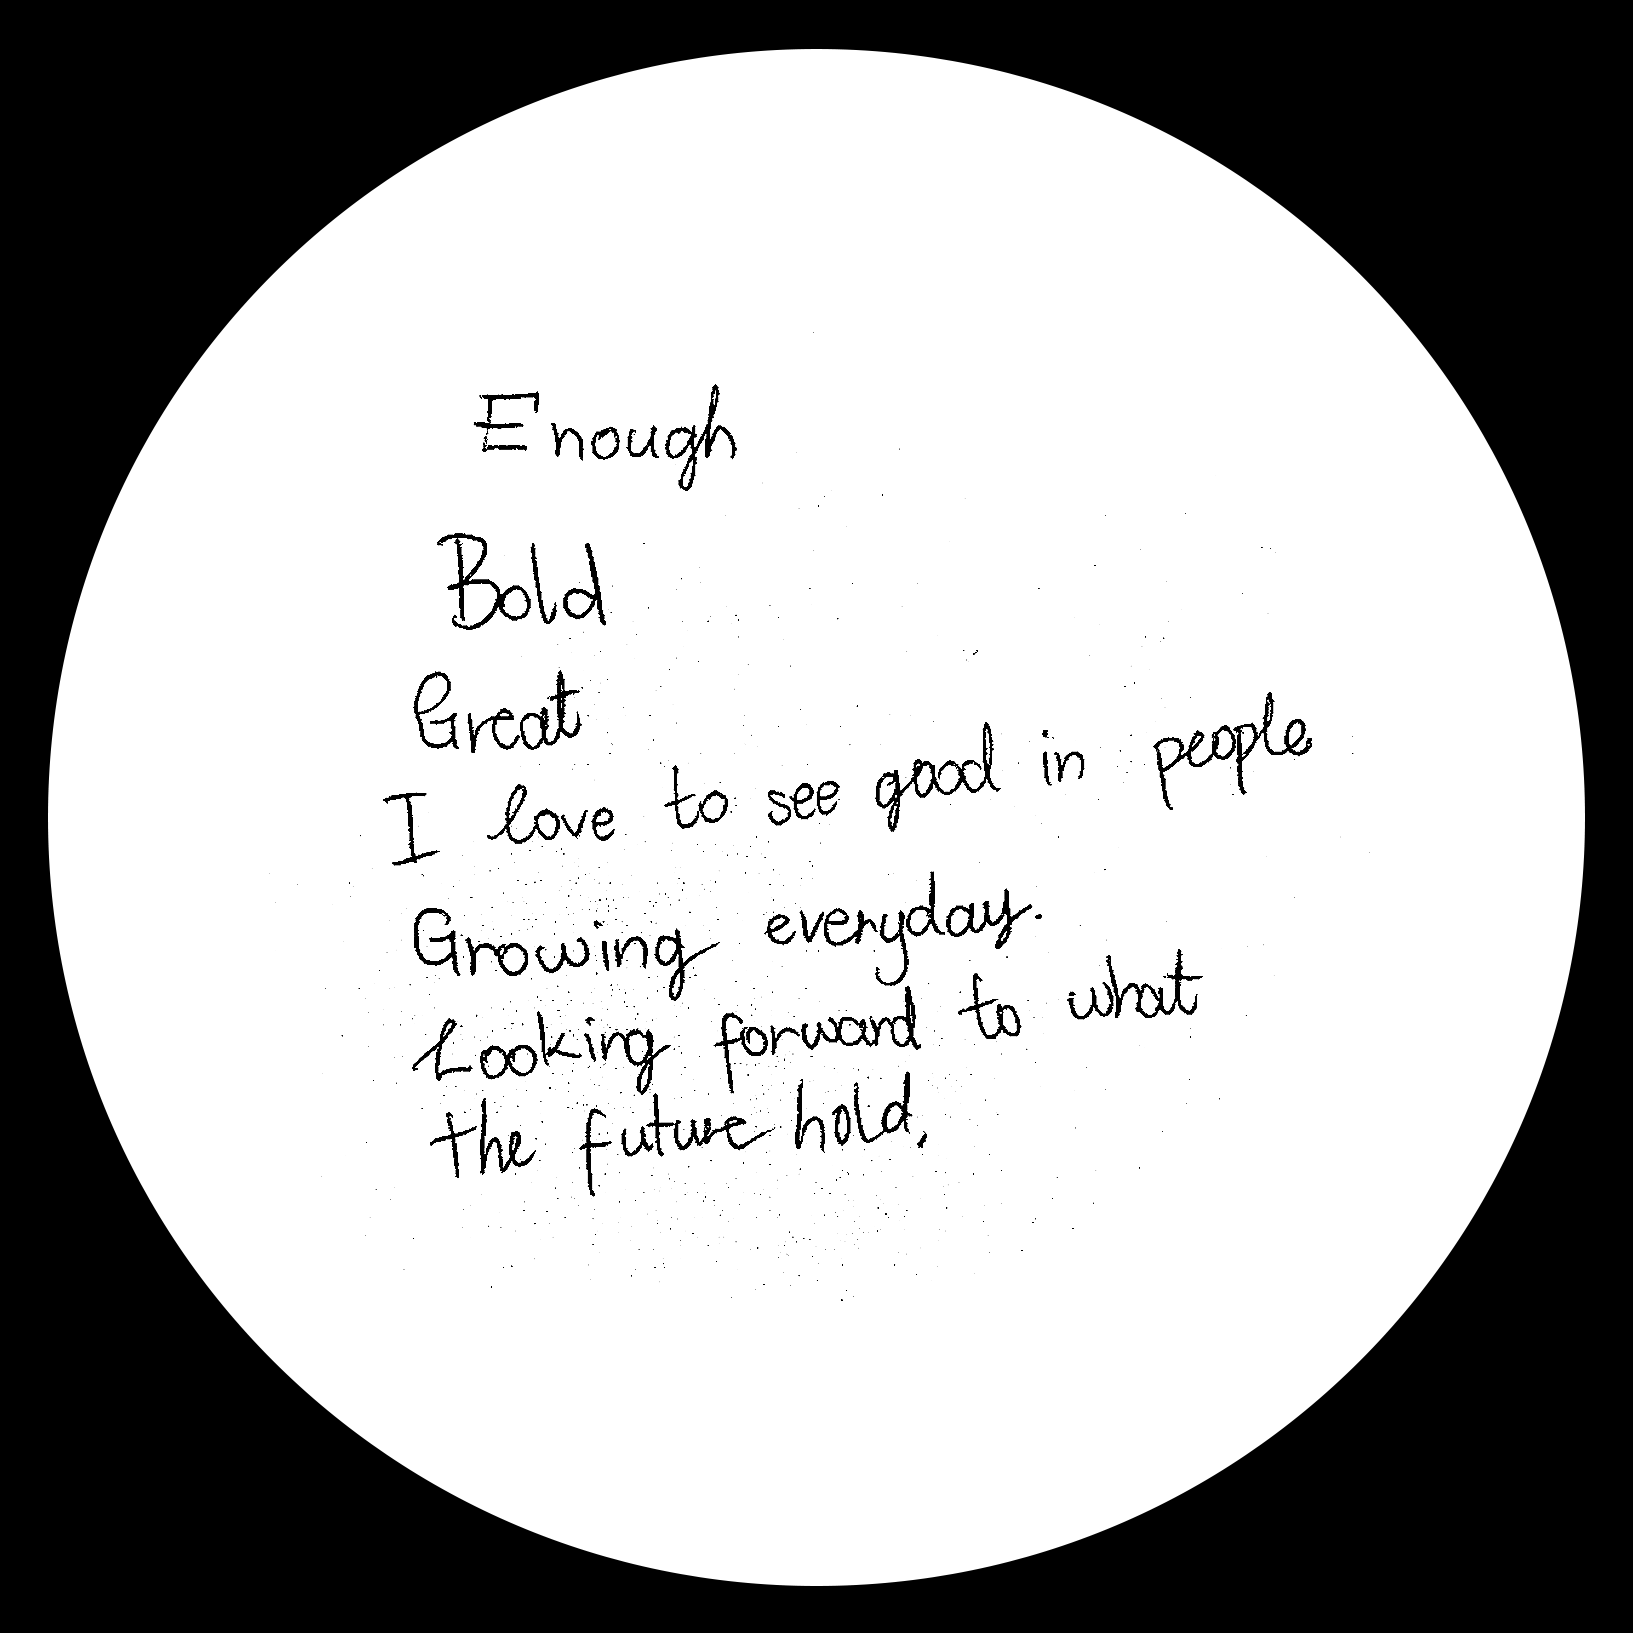 Enough
Bold
Great
I love to see good in people
Growing everyday.
Looking forward to what
the future hold,